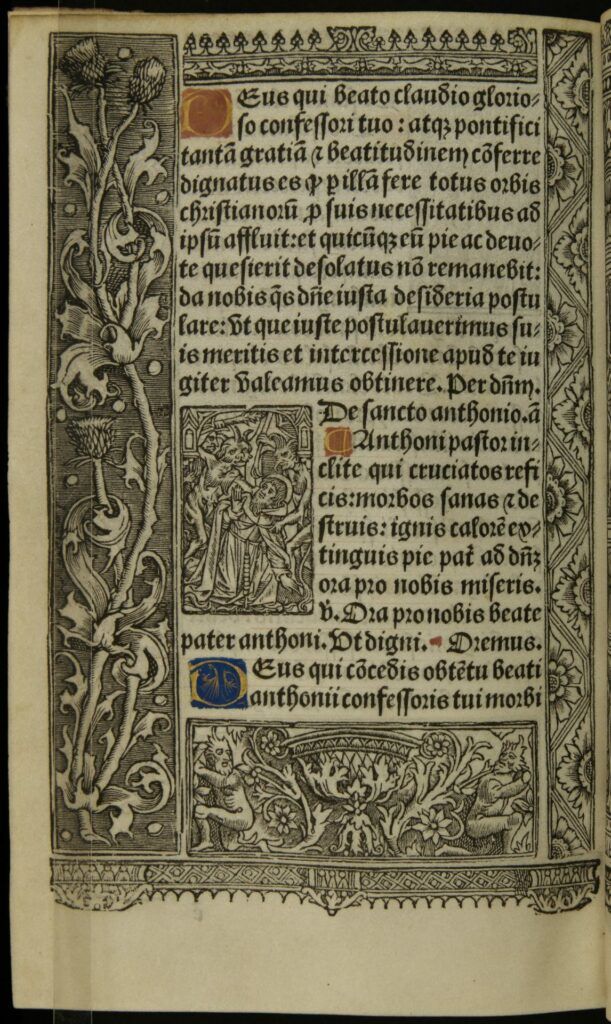 Deus qui beato claudio glorio⸗
so confessori tuo : atqꝫ pontifici
tantā gratiā ⁊ beatitudinem cōferre
dignatus es ꝙ ꝑ illā fere totus orbis
christianorū ꝓ suis necessitatibus ad
ipsū affluit: et quicūqꝫ eū pie ac deuo⸗
te quesierit desolatus nō remanebit:
da nobis q̄s dn̄e iusta desideria postu
lare: vt que iuste postulauerimus su⸗
is meritis et intercessione apud te iu
giter valeamus obtinere. Per dn̄m.
De sancto anthonio. an̄
Anthoni pastor in⸗
clite qui cruciatos refi
cis: morbos sanas ⁊ de
struis: ignis calorē ex⸗
tinguis pie pat̄ ad dn̄ꝫ
ora pro nobis miseris.
v. Ora pro nobis beate
pater anthoni. Vt digni. Oremus.
Deus qui cōcedis obtētu beati
anthonii confessoris tui morbi